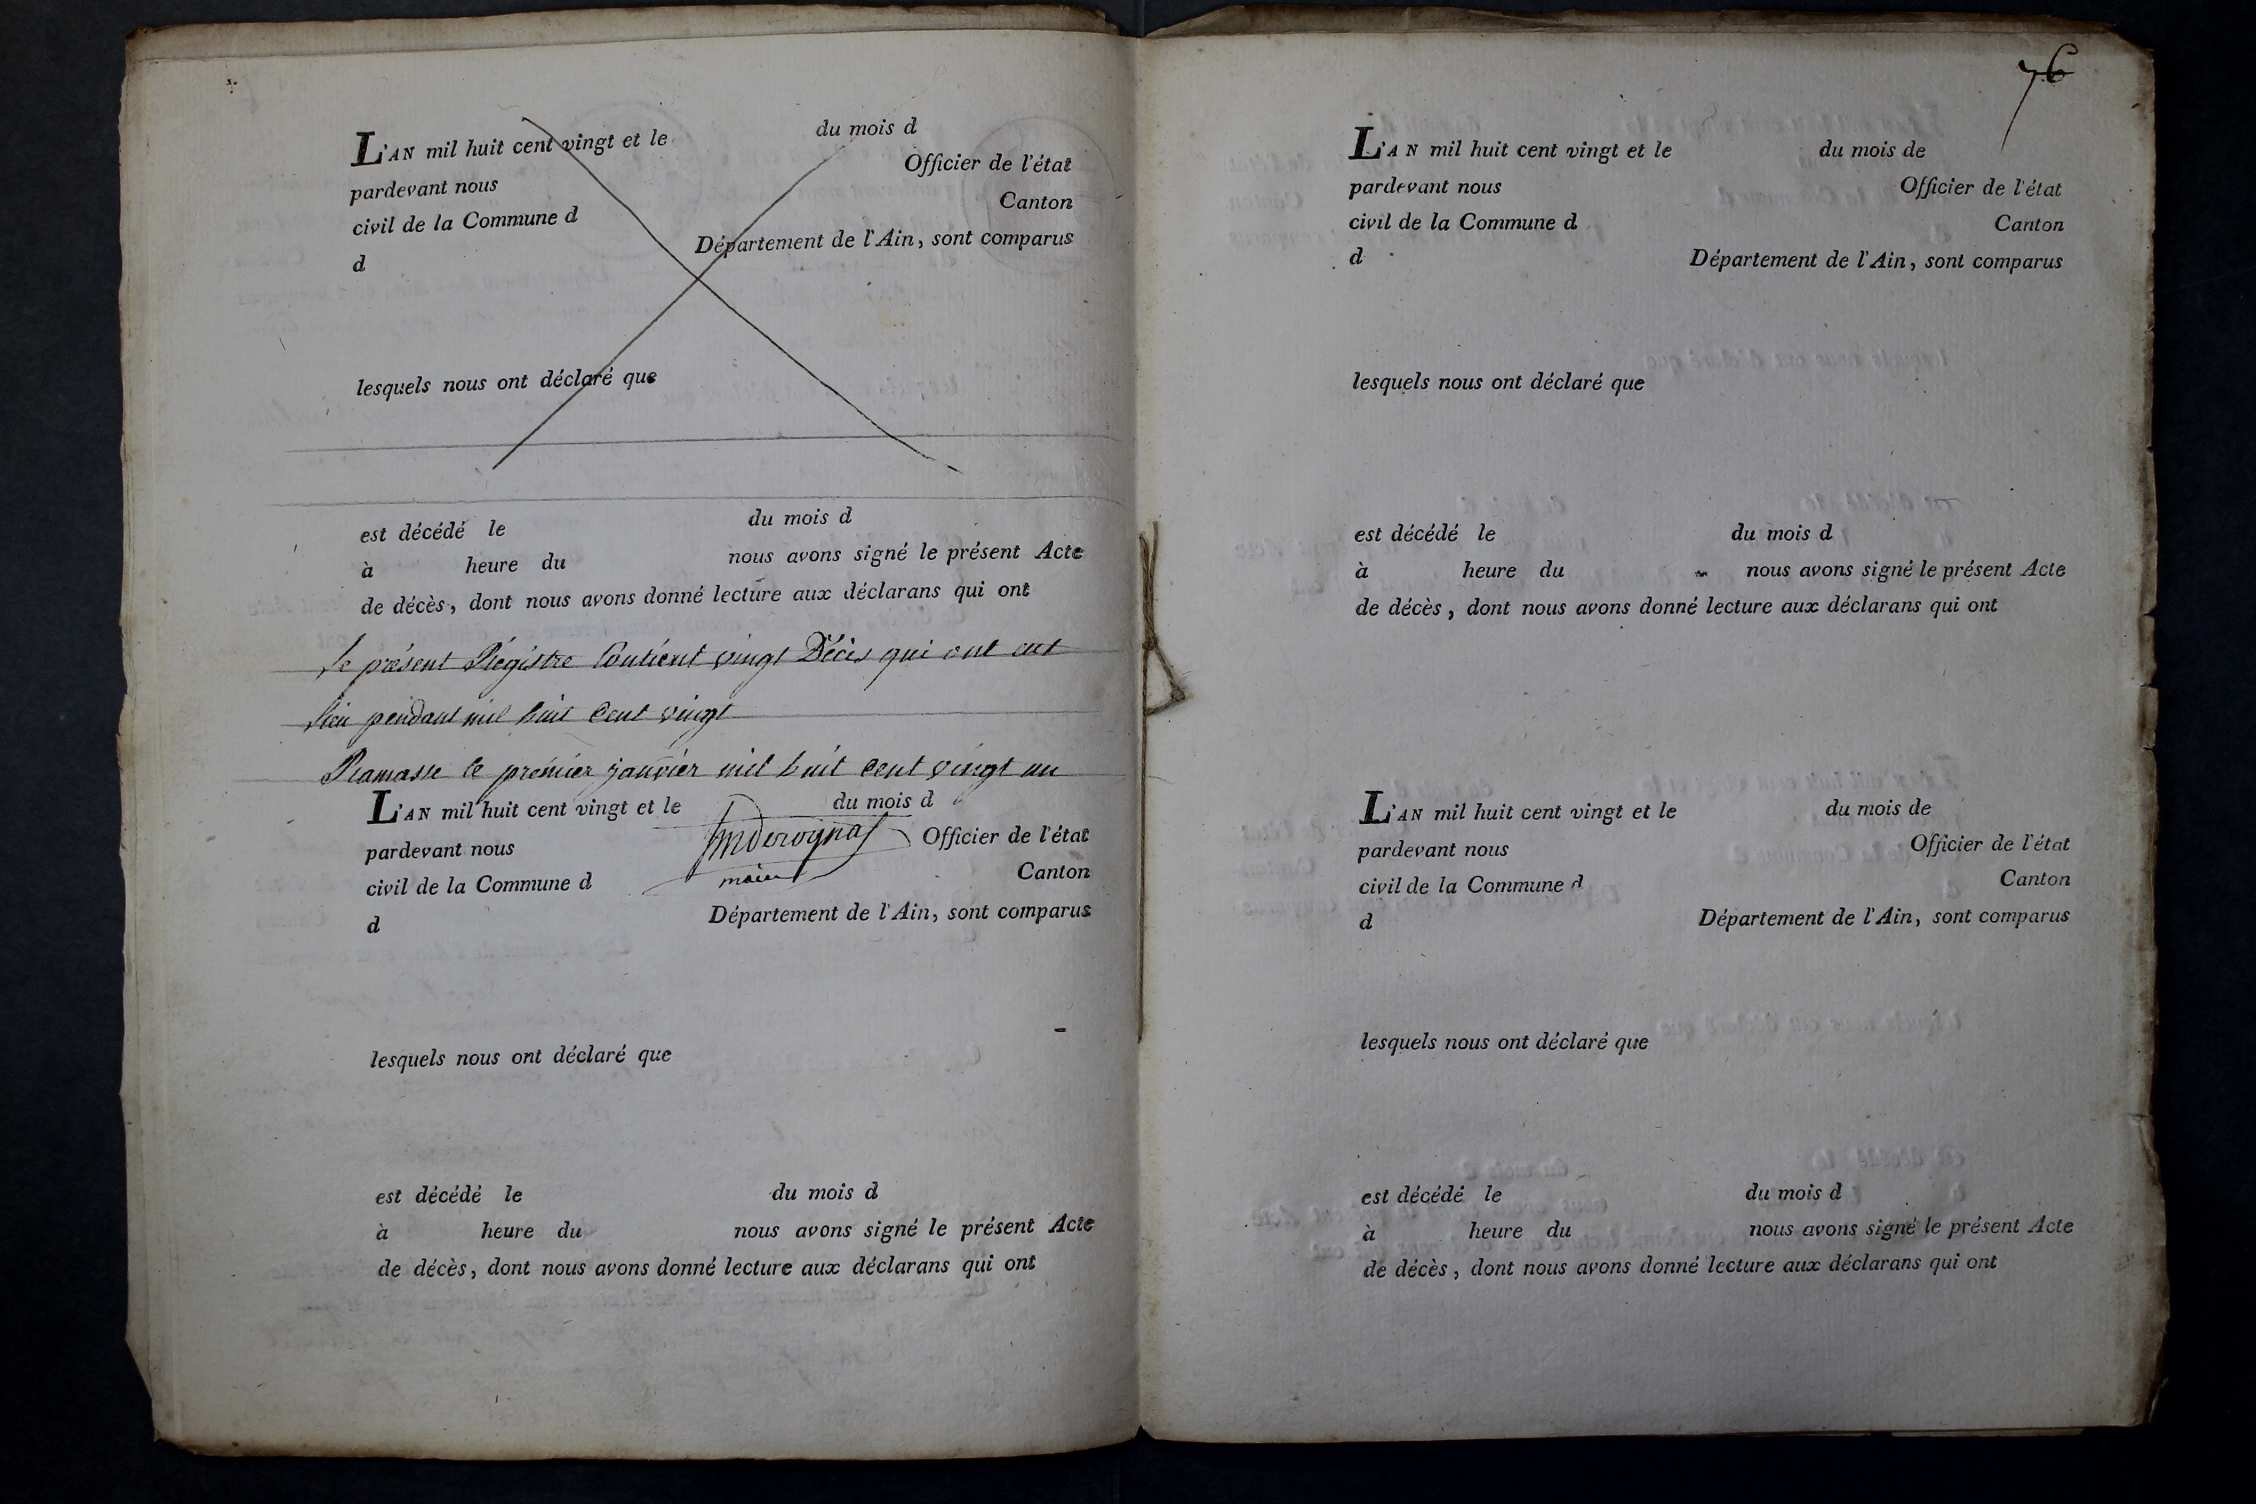 L'AN mil huit cent vingt et le du mois d
pardevant nous Officier de l'état
civil de la Commune d Canton
d Département de l'Ain, sont comparus
lesquels nous ont déclaré que
est décédé le du mois d
à heure du nous avons signé le présent Acte
de décès, dont nous avons donné lecture aux déclarans qui ont
le présent Régistre Contient vingt Décès qui ont eut
lieu pendant mil huit Cent vingt
Ramasse le premier janvier mil huit Cent vingt un
L'AN mil huit cent vingt et le du mois d
pardevant nous Officier de l'état
maire
civil de la Commune d Canton
d Département de l'Ain, sont comparus
lesquels nous ont déclaré que
est décédé le du mois d
à heure du nous avons signé le présent Acte
de décès, dont nous avons donné lecture aux déclarans qui ont
76
L'AN mil huit cent vingt et le du mois de
pardevant nous Officier de l'état
civil de la Commune d Canton
d Département de l'Ain, sont comparus
lesquels nous ont déclaré que
est décédé le du mois d
à heure du nous avons signé le présent Acte
de décès, dont nous avons donné lecture aux déclarans qui ont
L'AN mil huit cent vingt et le du mois de
pardevant nous Officier de l'état
civil de la Commune d Canton
d Département de l'Ain, sont comparus
lesquels nous ont déclaré que
est décédé le du mois d
à heure du nous avons signé le présent Acte
de décès, dont nous avons donné lecture aux déclarans qui ont